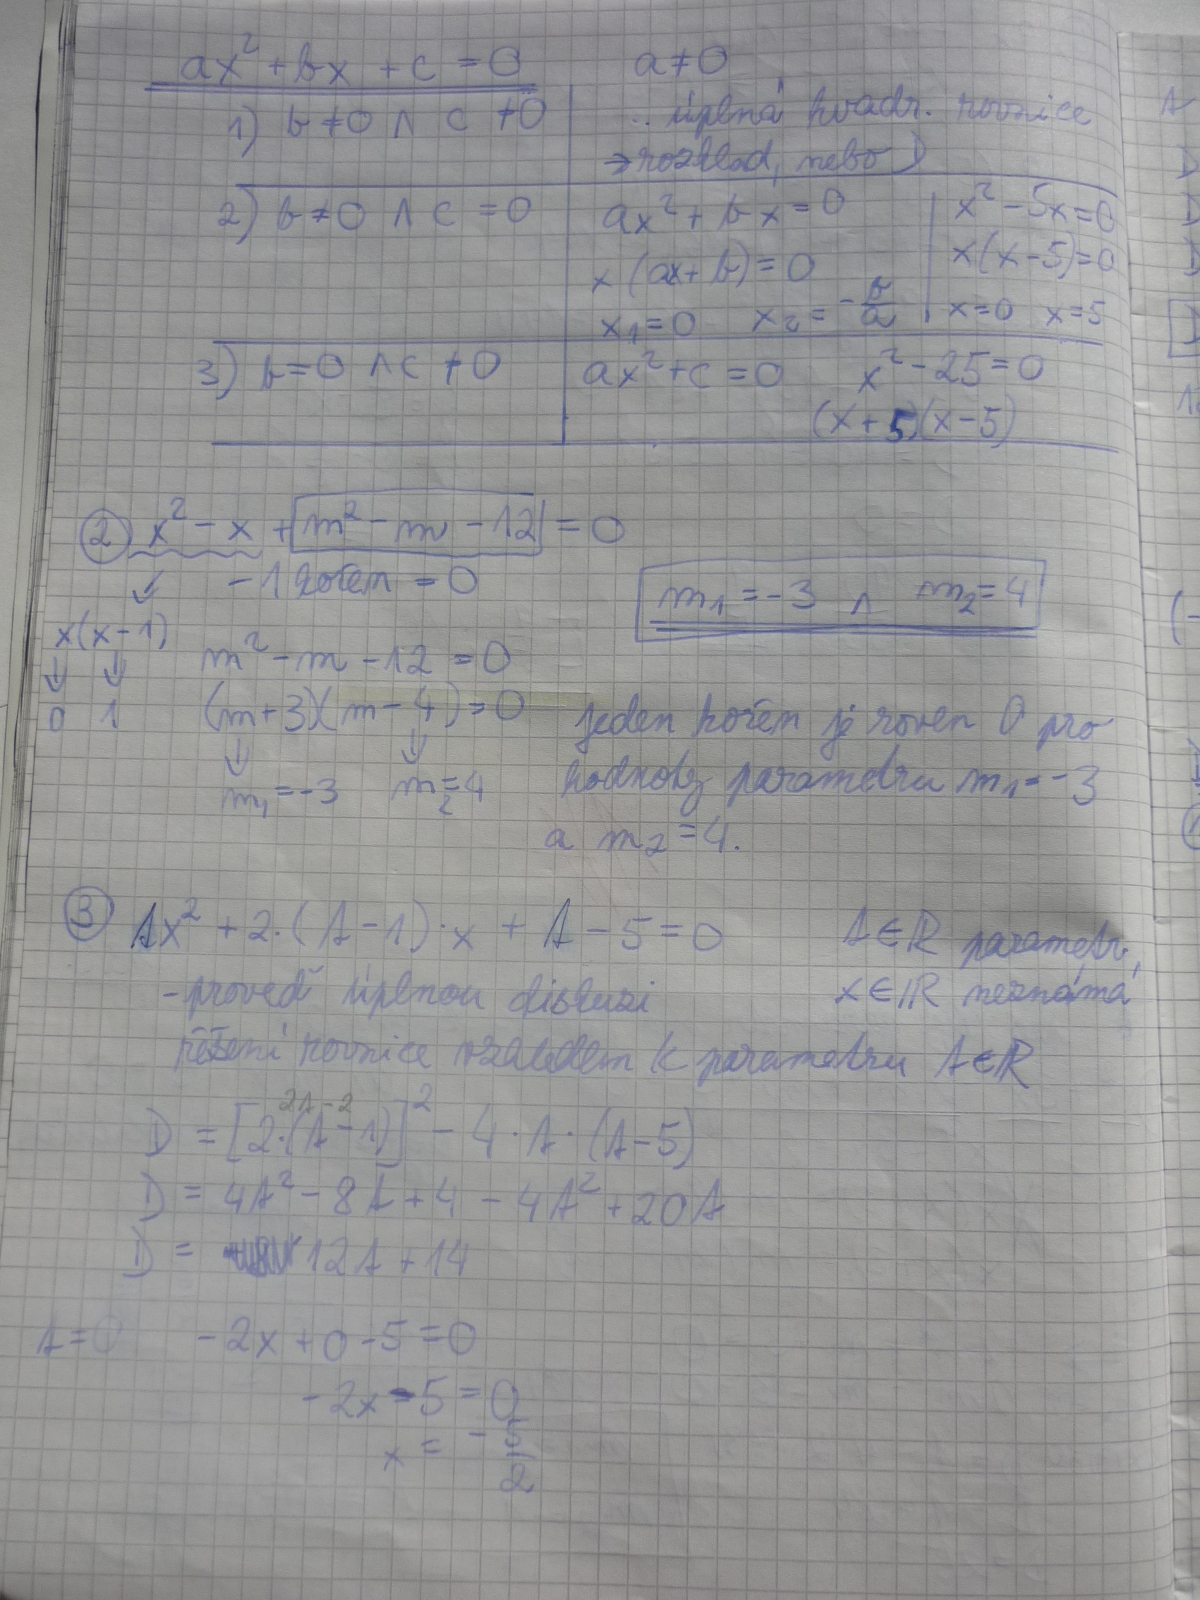 ax² + bx + c = 0    a ≠ 0
1) b ≠ 0 ∧ c ≠ 0    .. úplná kvadr. rovnice
→ rozklad, nebo D
2) b ≠ 0 ∧ c = 0    ax² + bx = 0    x² - 5x = 0
x (ax + b) = 0    x(x - 5) = 0
x₁ = 0    x₂ = - b/a    x = 0    x = 5
3) b = 0 ∧ c ≠ 0    ax² + c = 0    x² - 25 = 0
(x + 5)(x - 5)
② x² - x + m² - m - 12 = 0
- 1 kořen = 0    m₁ = -3 ∧ m₂ = 4
x(x - 1)    m² - m - 12 = 0
↓ ↓    (m + 3)(m - 4) = 0
0 1    ↓ ↓
m₁ = -3    m₂ = 4
jeden kořen je roven 0 pro
hodnoty parametru m₁ = -3
a m₂ = 4.
③ Ax² + 2·(A - 1)·x + A - 5 = 0    A ∈ ℝ parametr,
- proveď úplnou diskuzi    x ∈ ℝ neznámá
řešení rovnice vzhledem k parametru A ∈ ℝ
2A - 2
D = [2·(A - 1)]² - 4·A·(A - 5)
D = 4A² - 8A + 4 - 4A² + 20A
D = 12A + 14
A = 0    - 2x + 0 - 5 = 0
- 2x - 5 = 0
x = - 5/2